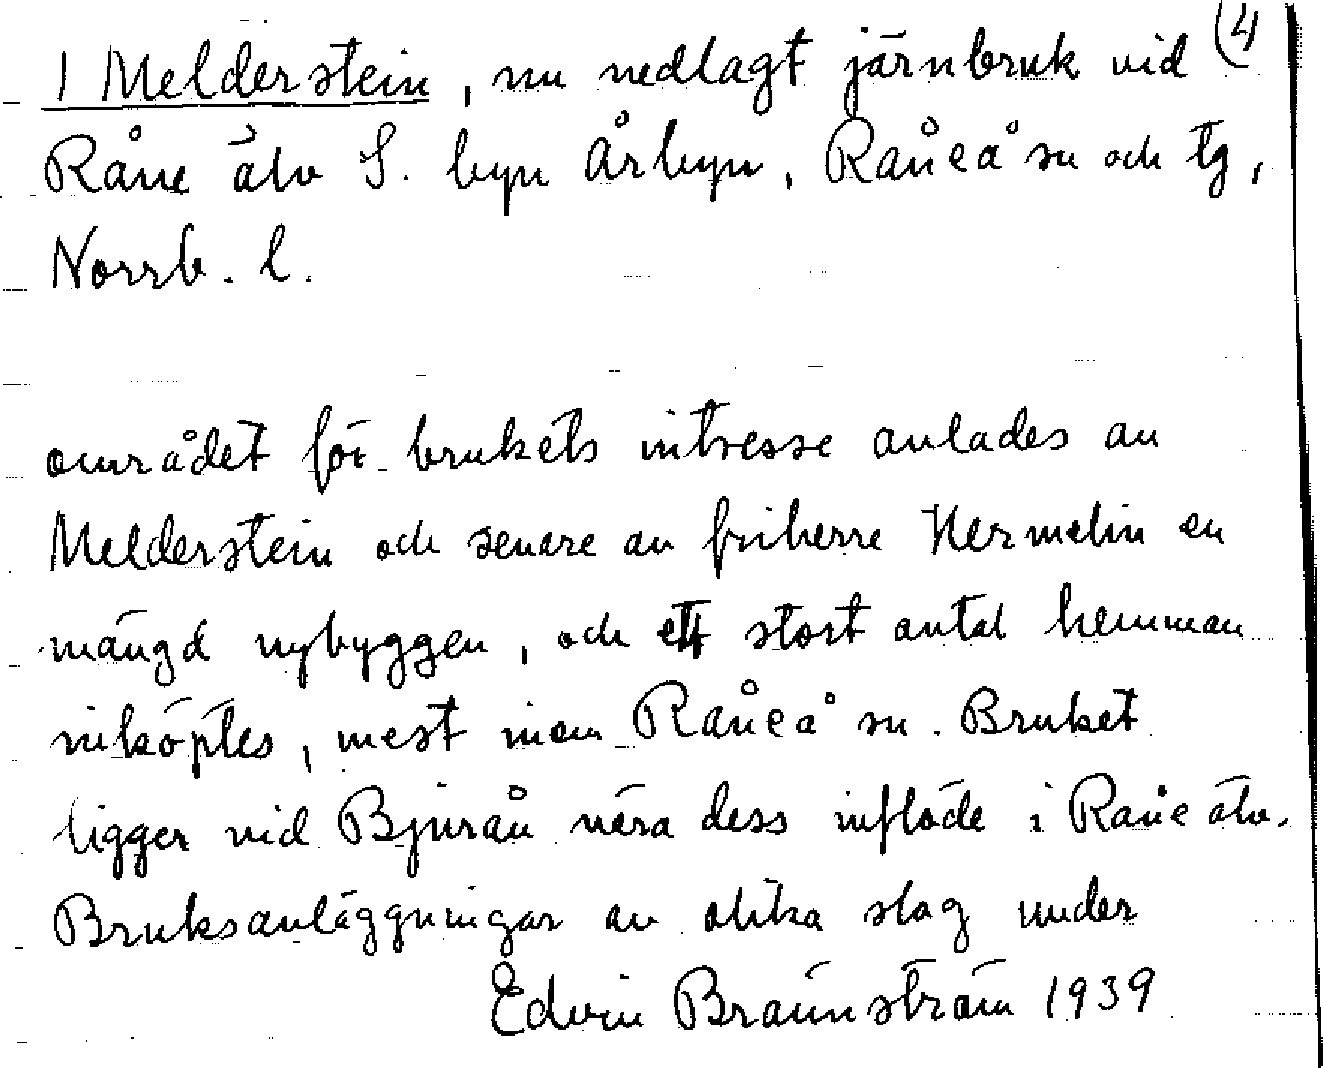 1 Melderstein, nu nedlagt järnbruk vid (4
Råne älv S. byn Årbyn, Råneå sn och tg,
Norrb. l.
området för brukets intresse anlades av
Melderstein och senare av friherre Hermelin en
mängd nybyggen, och ett stort antal hemman
inköptes, mest inom Råneå sn. Bruket
ligger vid Bjurån nära dess inflöde i Råne älv.
Bruksanläggningar av olika slag under
Edvin Brännström 1939